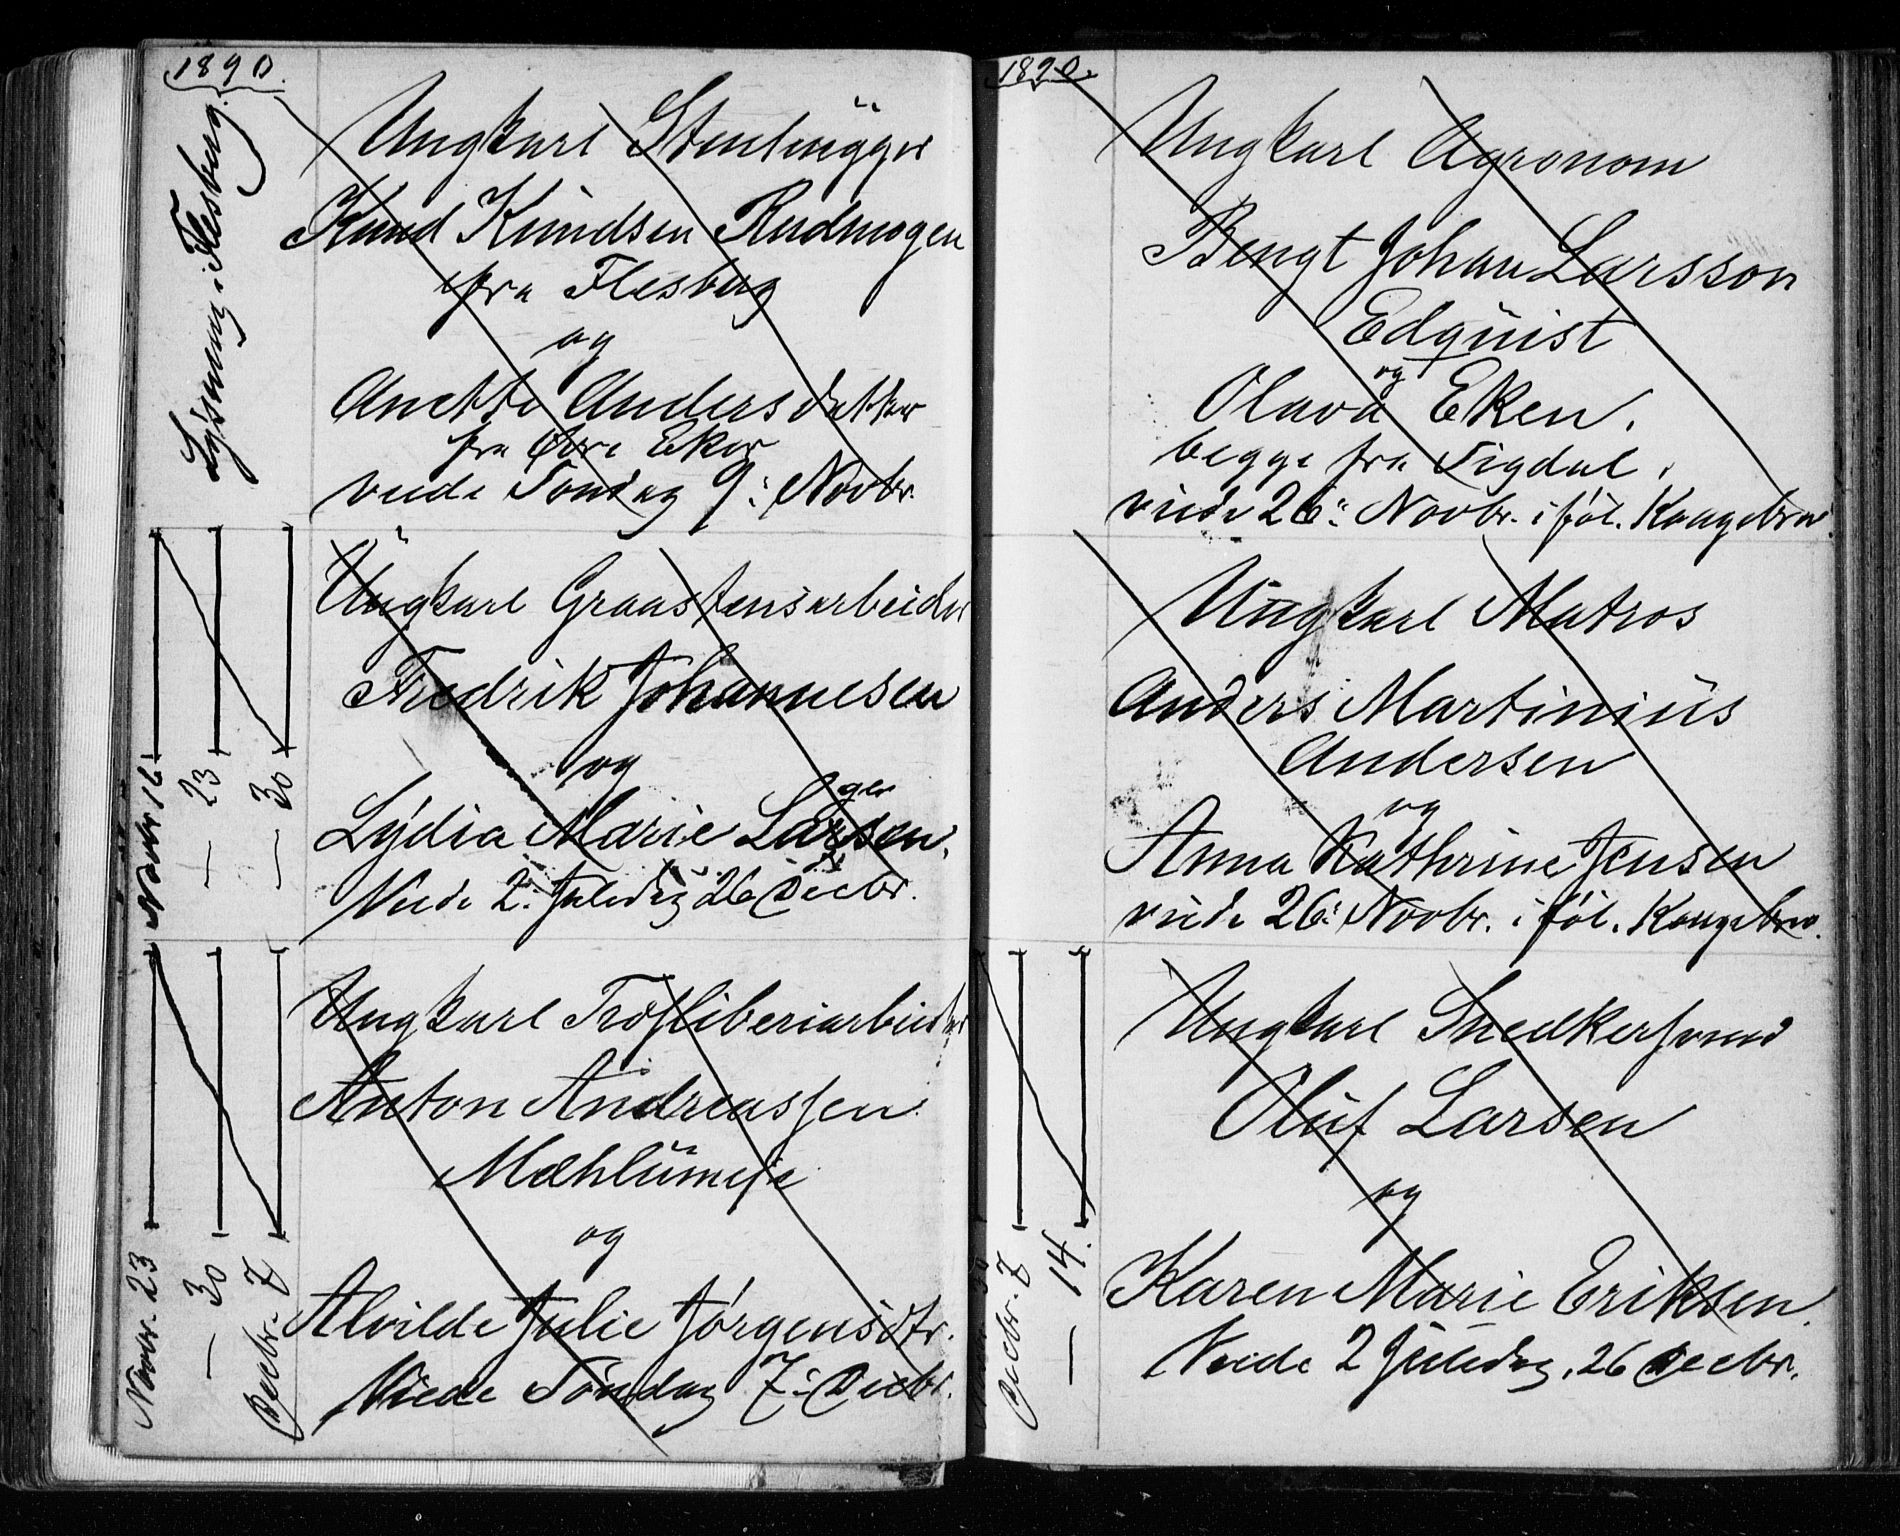 1890.
Lysning i Flesberg.
Ungkarl Stenhügger
Knud Knudsen Rudmogen
fra Flesberg
og
Anette Andersdatter
fra Øvre Eker
viede Søndag 9: Novbr.
Novbr 16
— 23
— 30
Ungkarl Graastensarbeider
Fredrik Johannesen
og
ger
Lydia Marie Larsen.
Viede 2. Juledag 26 Decbr.
Novbr. 23
— 30
Decbr. 7
Ungkarl Træsliberiarbeider
Anton Andreassen
Mæhlumeje
og
Alvilde Julie Jørgensdtr.
Viede Søndag 7: Decbr.
1890.
Ungkarl Agronom
Bengt Johan Larsson
Edquist
og
Olava Eken.
begge fra Sigdal.
viede 26: Novbr. i føl. Kongebrev.
Ungkarl Matros
Anders Martinius
Andersen
og
Anna Kathrine Jensen
viede 26: Novbr. i føl. Kongebrev.
Decbr. 7
— 14.
Ungkarl Snedkersvend
Oluf Larsen
og
Karen Marie Eriksen.
Viede 2 Juledag, 26 Decbr.